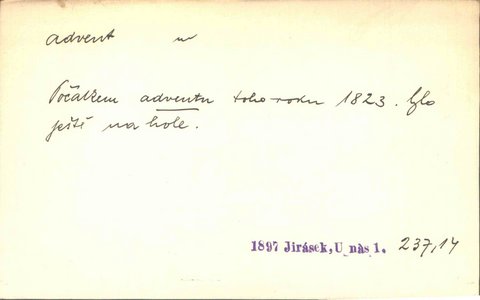 advent m
Počátkem adventu toho roku 1823. bylo
ještě na hole.
1897 Jirásek, U nás 1. 237,14